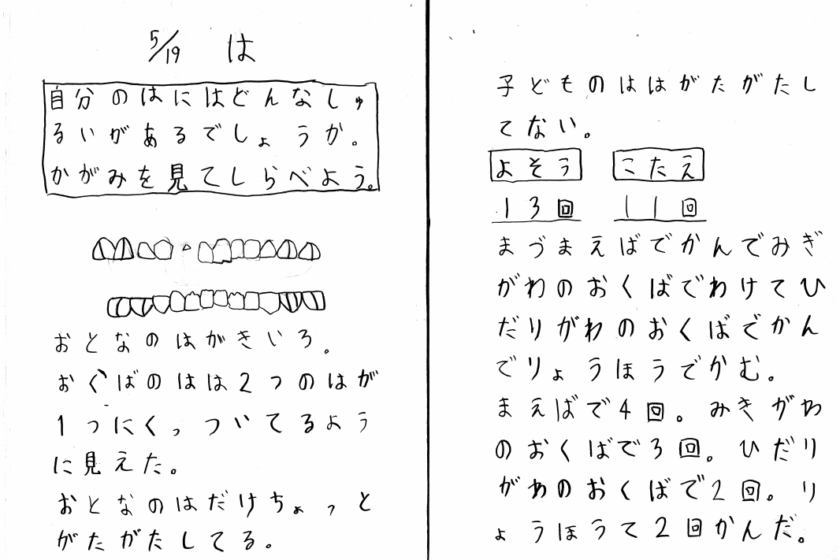 5/19 は
自分のはにはどんなしゅ
るいがあるでしょうか。
かがみを見てしらべよう。
おとなのはがきいろ。
おくばのはは2つのはが
1つにくっついてるよう
に見えた。
おとなのはだけちょっと
がたがたしてる。
子どものははがたがたし
てない。
よそう こたえ
13回 11回
まづまえばでかんでみぎ
がわのおくばでわけてひ
だりがわのおくばでかん
でりょうほうでかむ。
まえばで4回。みきがわ
のおくばで3回。ひだり
がわのおくばで2回。り
ょうほうて2回かんだ。